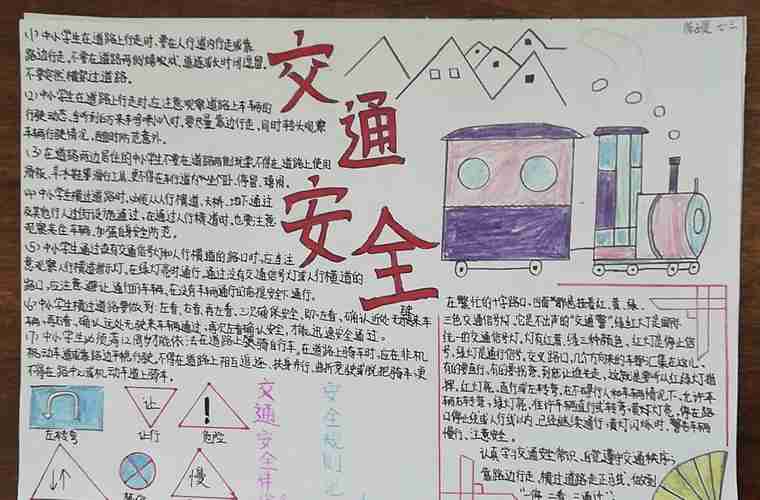 交通安全
(1)中小学生在道路上行走时,要在人行道内行走或靠
路边行走。不要在道路两侧嬉戏,追逐或长时间逗留。
不要突然横穿过道路。
(2)中小学生在道路上行走时,应注意观察道路上车辆的
行驶动态。当听到后方来车鸣喇叭时,要尽量靠边行走,同时转头观察
车辆行驶情况,随时防范意外。
(3)在道路两边居住的中小学生不要在道路两侧玩耍,不得在道路上使用
滑板、旱冰鞋等滑行工具,更不得在车行道内坐卧、停留、嬉闹。
(4)中小学生横过道路时,必须从人行横道、天桥、地下通道
及其他行人过街设施通过,在通过人行横道时,也要注意
观察来往车辆,加强自身安全防范。
(5)中小学生通过设有交通信号灯和人行横道的路口时,应当注
意观察人行横道指示灯,在绿灯亮时通行,通过没有交通信号灯或人行横道的
路口,应注意避让通行的车辆,在没有车辆通行的前提下通行。
(6)中小学生横过道路要做到:左看,右看,再左看,三次确保安全,即:左看,确认近处无驶来车
辆,再右看,确认远处无驶来车辆通过,再次左看确认安全,才能迅速安全通过。
(7)中小学生必须满12周岁才能依法在道路上骑自行车。在道路上骑车时,应在非机
机动车道或靠路边单侧行驶,不得在道路上相互追逐、扶身并行、曲折竞驶或脱把骑车,更
不得在路中心或机动车道上骑车。
左转弯
让
让行
危险
慢
交通安全
安全规则
陈 七三
在繁忙的十字路口,四面都悬挂着红、黄、绿、
三色交通信号灯,它是不出声的“交通警”。红绿灯是国际
统一的交通信号灯。灯有红、黄、绿三种颜色。红灯是停止信
号,绿灯是通行信号,交叉路口,几个方向来的车都汇集在这儿,
有的要直行,有的要拐弯,到底让谁先走,这就是要听从红绿灯指
挥。红灯亮,直行或左转弯,在不碍行人和车辆情况下,允许车
辆右转弯,绿灯亮,准许车辆直行或转弯;黄灯灯亮,停在路
口停止线或人行线以内,已经继续通行;黄灯闪烁时,警告车辆
慢行,注意安全。
认真学习交通安全常识,自觉遵守交通秩序;
靠路边行走,横过道路走斑马线,做到
“一停二看三通过”